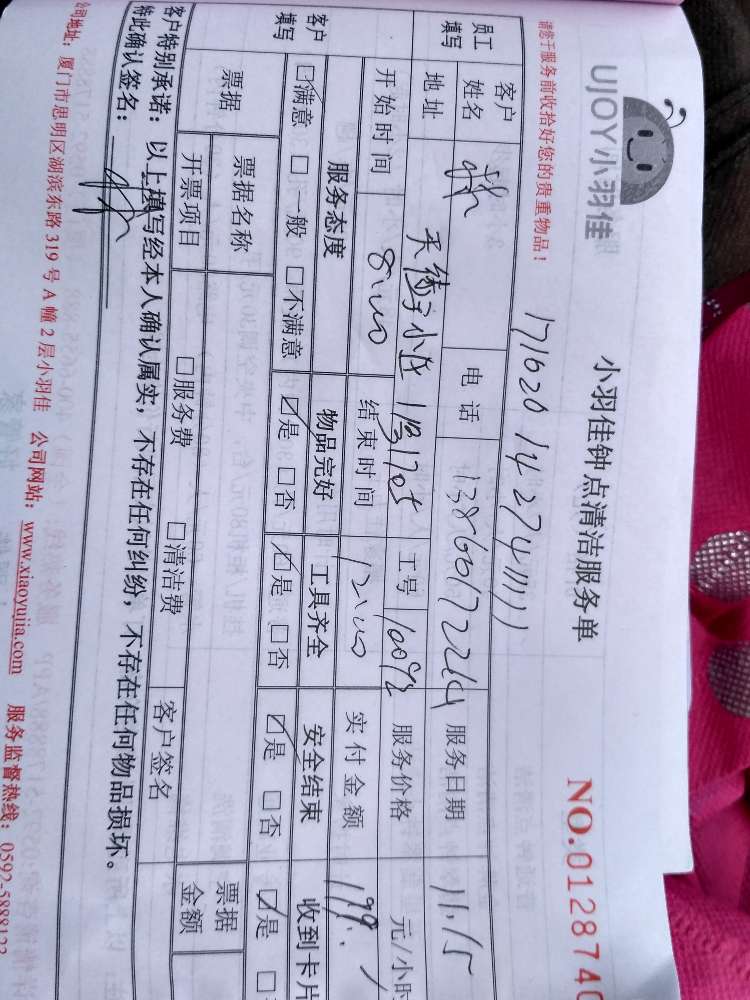 UJOY小羽佳
小羽佳钟点清洁服务单
NO.0128740
请您于服务前收拾好您的贵重物品！
1716201427411111
员工填写
客户姓名
电话
13860172264
服务日期
11.15
地址
天德子小区 1号1705
工号
10092
服务价格
元/小时
开始时间
8:00
结束时间
12:00
实付金额
199.
客户填写
服务态度
物品完好
工具齐全
安全结束
收到卡片
☑满意 □一般 □不满意
☑是 □否
☑是 □否
☑是 □否
☑是 □
票据
票据名称
票据金额
开票项目
□服务费
□清洁费
客户签名
客户特别承诺：以上填写经本人确认属实，不存在任何纠纷，不存在任何物品损坏。
特此确认签名：
公司地址：厦门市思明区湖滨东路319号A幢2层小羽佳 公司网站：www.xiaoyujia.com 服务监督热线：0592-5888122